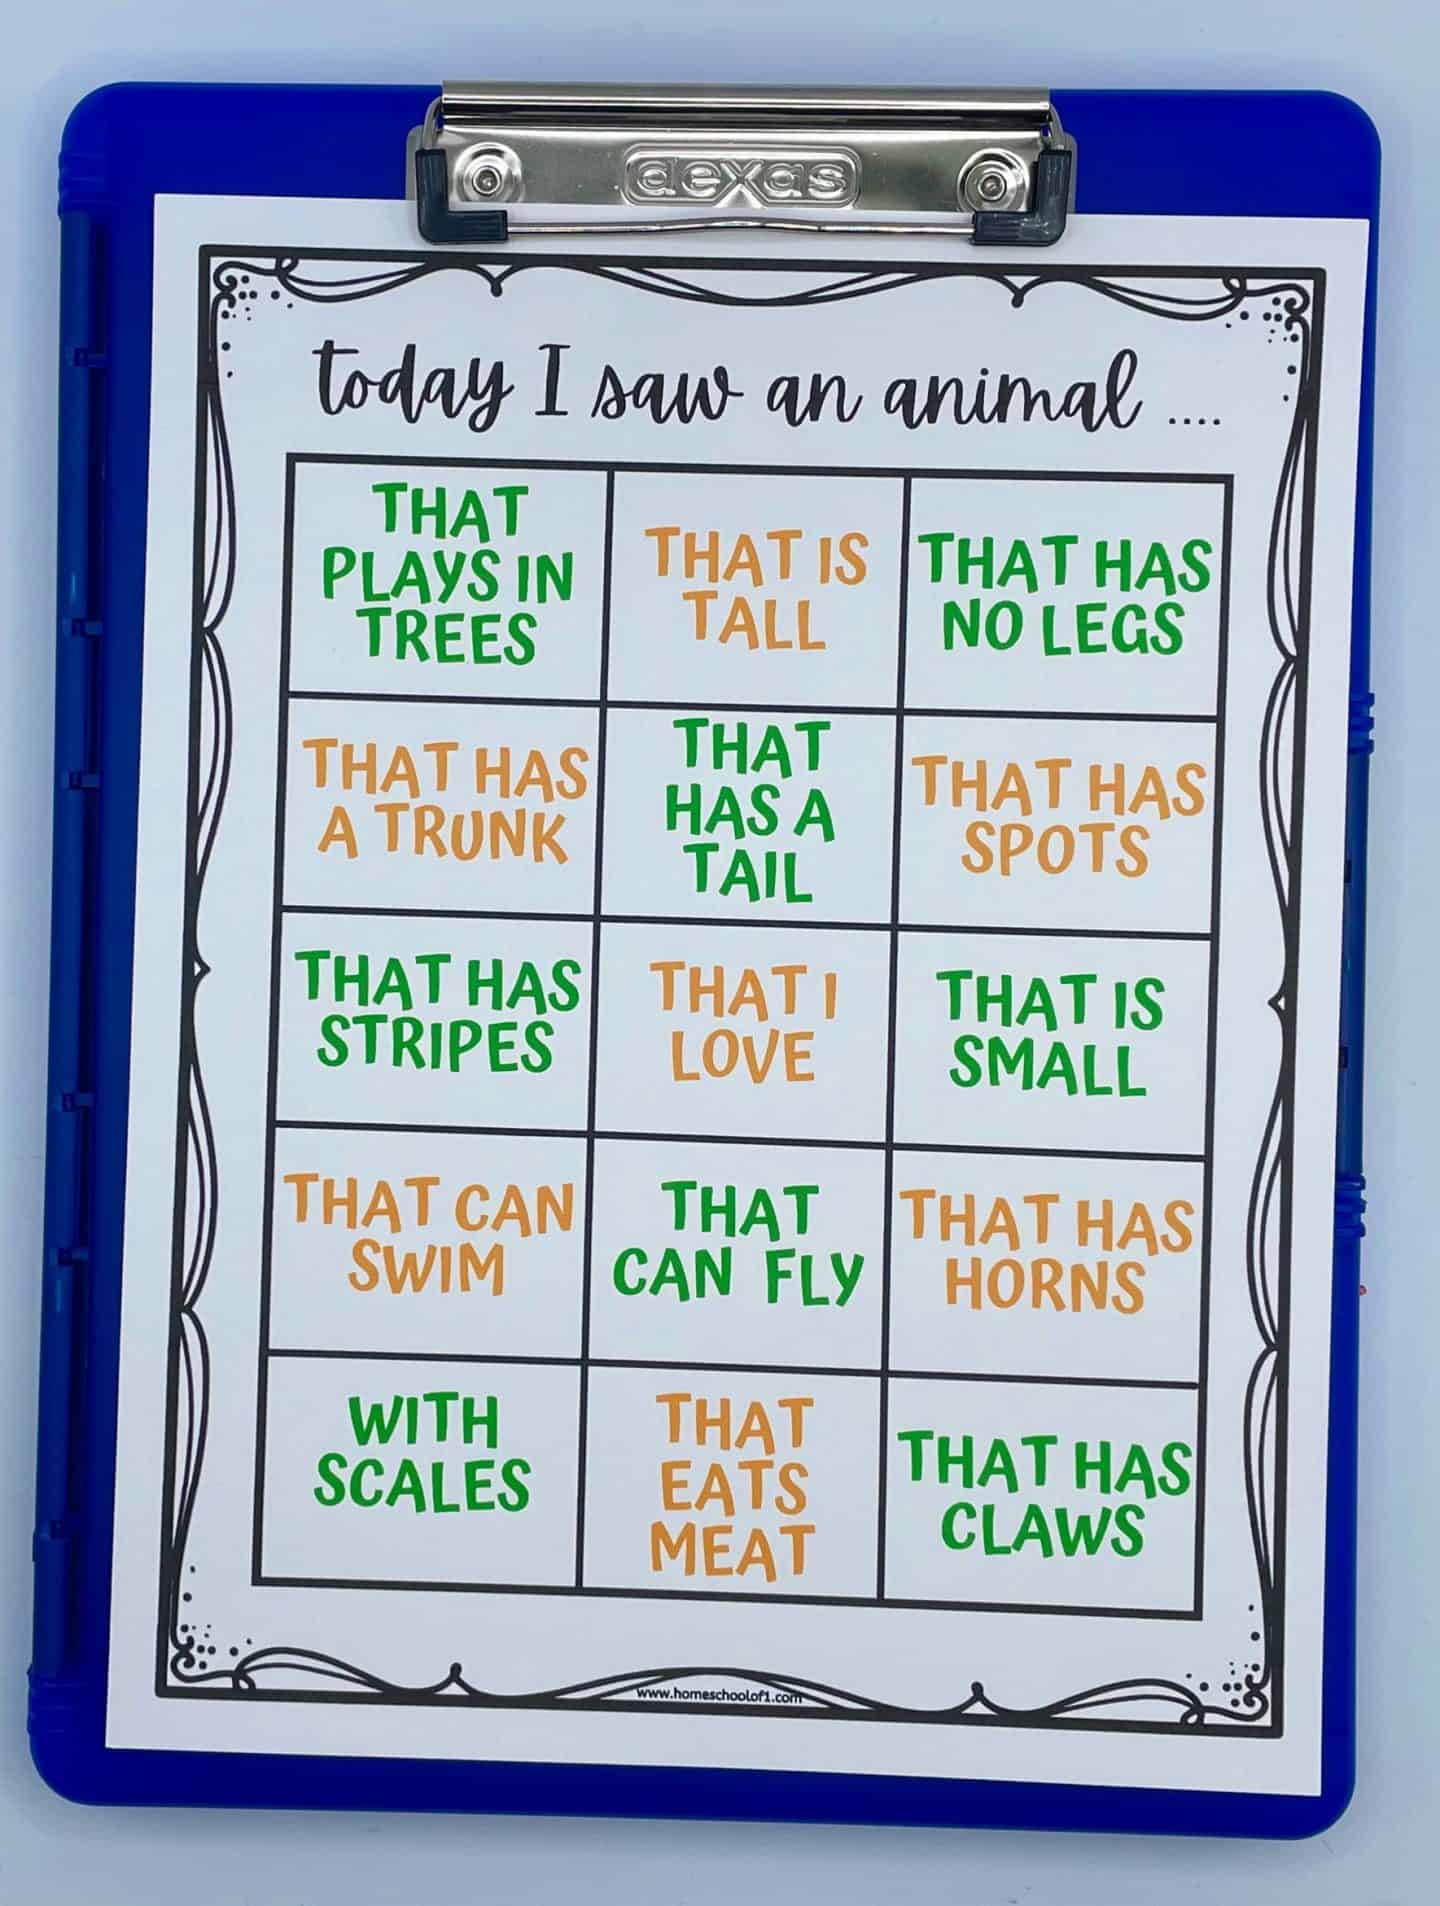 dexas
today I saw an animal ....
THAT
PLAYS IN
TREES
THAT IS
TALL
THAT HAS
NO LEGS
THAT HAS
A TRUNK
THAT
HAS A
TAIL
THAT HAS
SPOTS
THAT HAS
STRIPES
THAT I
LOVE
THAT IS
SMALL
THAT CAN
SWIM
THAT
CAN FLY
THAT HAS
HORNS
WITH
SCALES
THAT
EATS
MEAT
THAT HAS
CLAWS
www.homeschoolof1.com